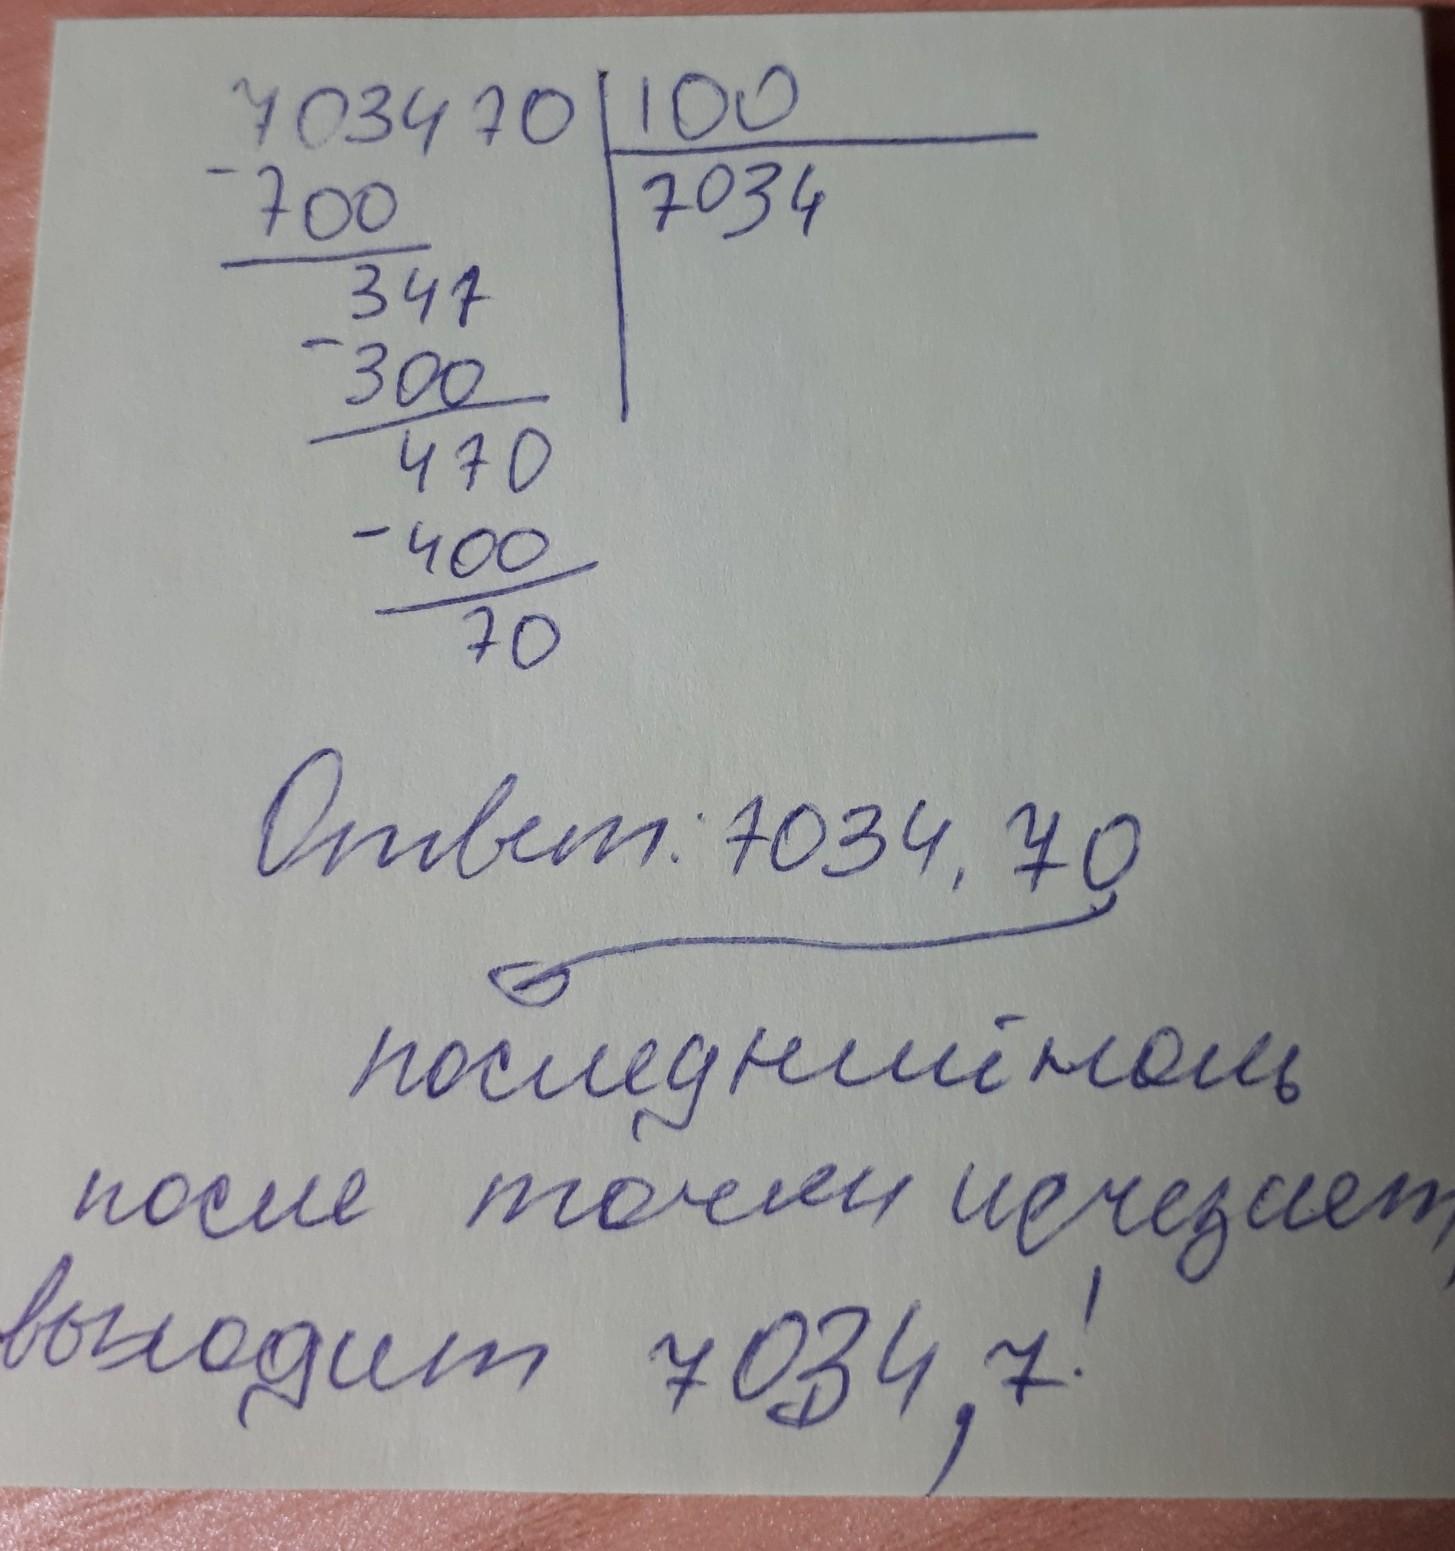 703470 100
-700 7034
347
-300
470
-400
70
Ответ: 7034,70
последний ноль
после точки исчезает,
выходит 7034,7!